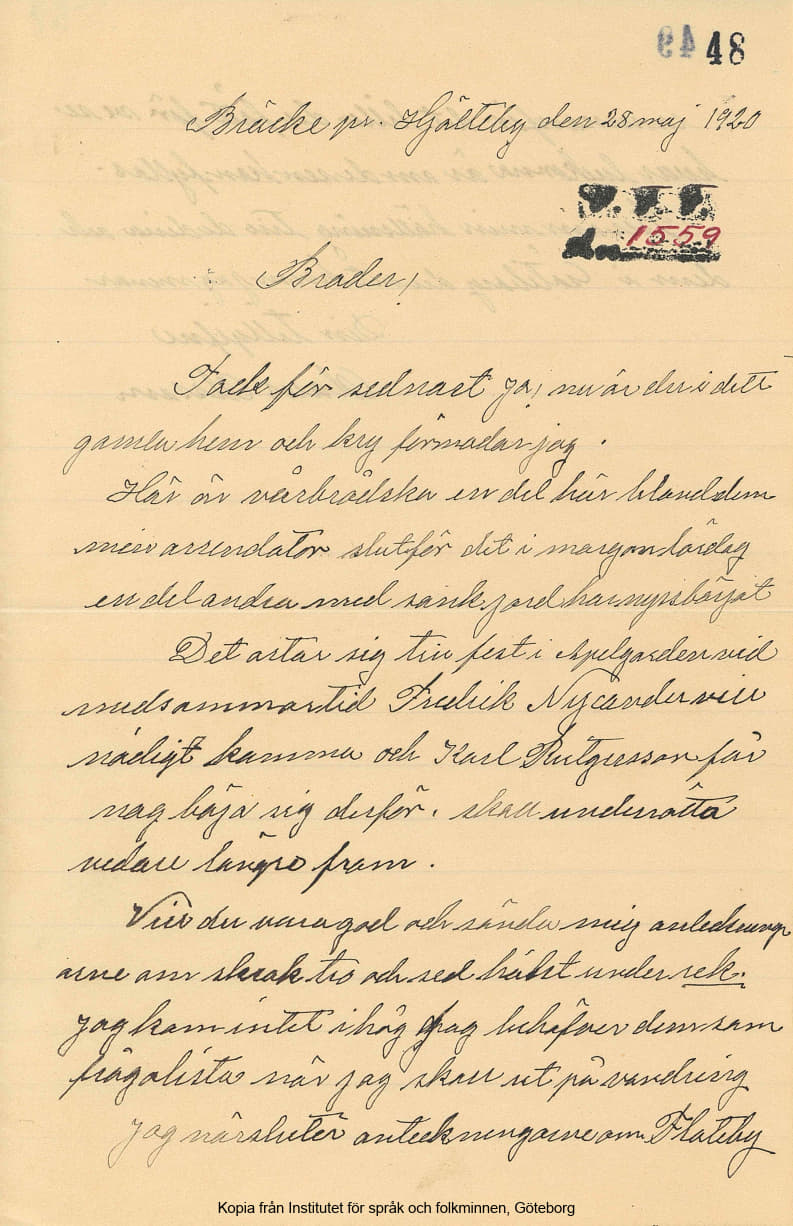 49 48
Bräcke pr. Hjälteby den 28 maj 1920
1559
Broder!
Tack för sednast ja! nu är du i ditt
gamla hem och kry förmodar jag.
Här är vårbrådska en del här bland dem
min arrendator slutför det i morgon lördag
en del andra med sank jord har nyss börjat
Det artar sig till fest i Apelgården vid
medsommartid Fredrik Nycander vill
nödigt komma och Karl Rutgersson får
nog böja sig derför. skall underrätta
vedare längre fram.
Vill du vara god och sända mig anteckning
arne om skrak tro och sed hälst under rek.
jag kom intet ihåg jag behöfver dem som
frågolista när jag skall ut på vandring
Jag närsluter anteckningarne om Flateby
Kopia från Institutet för språk och folkminnen, Göteborg